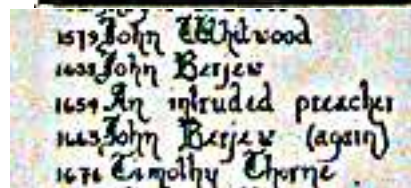 1579 John Whitwood
1638 John Berjew
1654 An intruded preacher
1663 John Berjew (again)
1676 Timothy Thorne